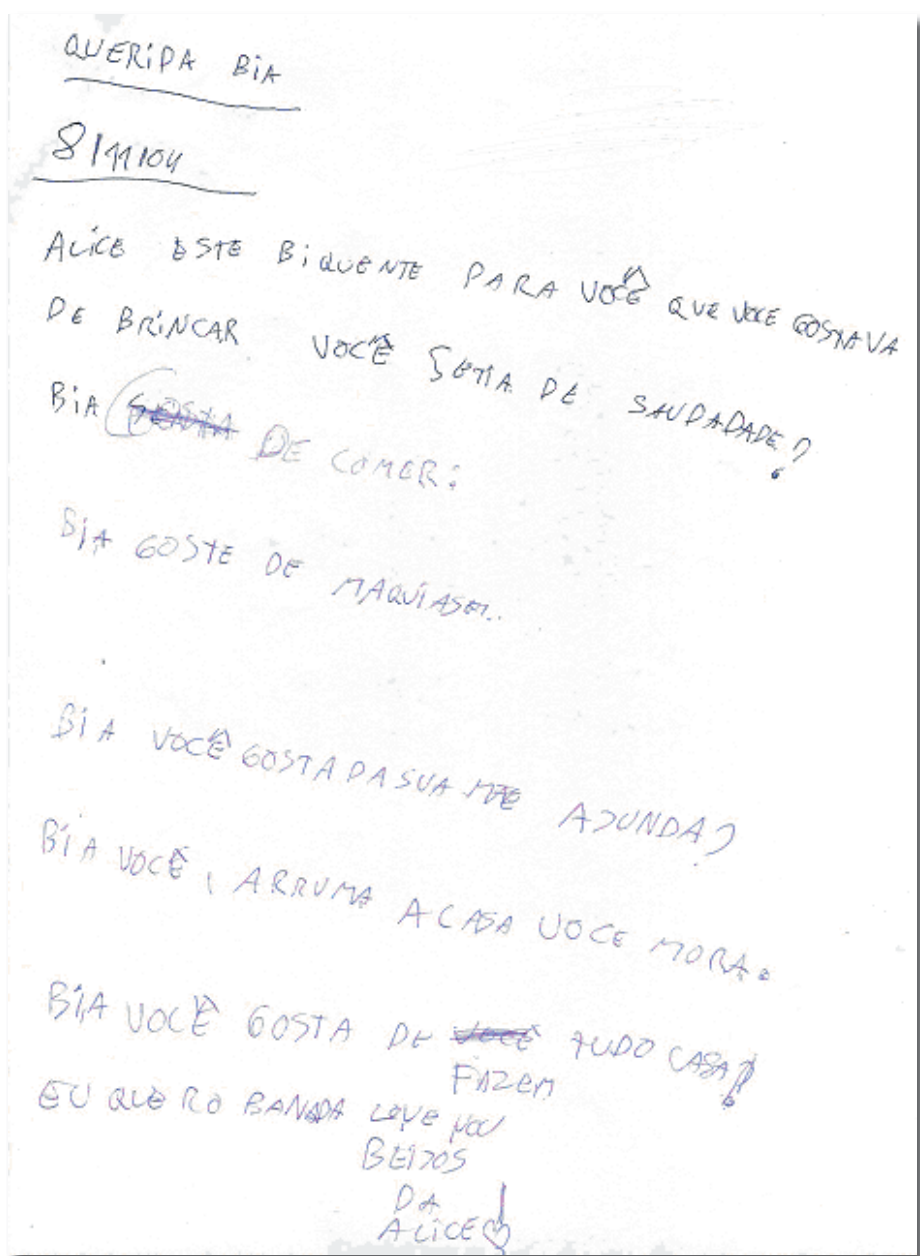 QUERIDA BIA
8/11/04
ALICE ESTE BIQUENTE PARA VOCÊ QUE VOCE GOSTAVA
DE BRINCAR VOCÊ SETIA DE SAUDADADE?
BIA GOSTA DE COMER:
BIA GOSTE DE MAQUIAGEM..
BIA VOCÊ GOSTA DA SUA MÃE AJUNDA?
BIA VOCÊ, ARRUMA A CASA VOCE MORA.
BIA VOCÊ GOSTA DE VOCÊ TUDO CASA?
FAZEM
EU QUERO LOVE YOU
BEIJOS
DA
ALICE